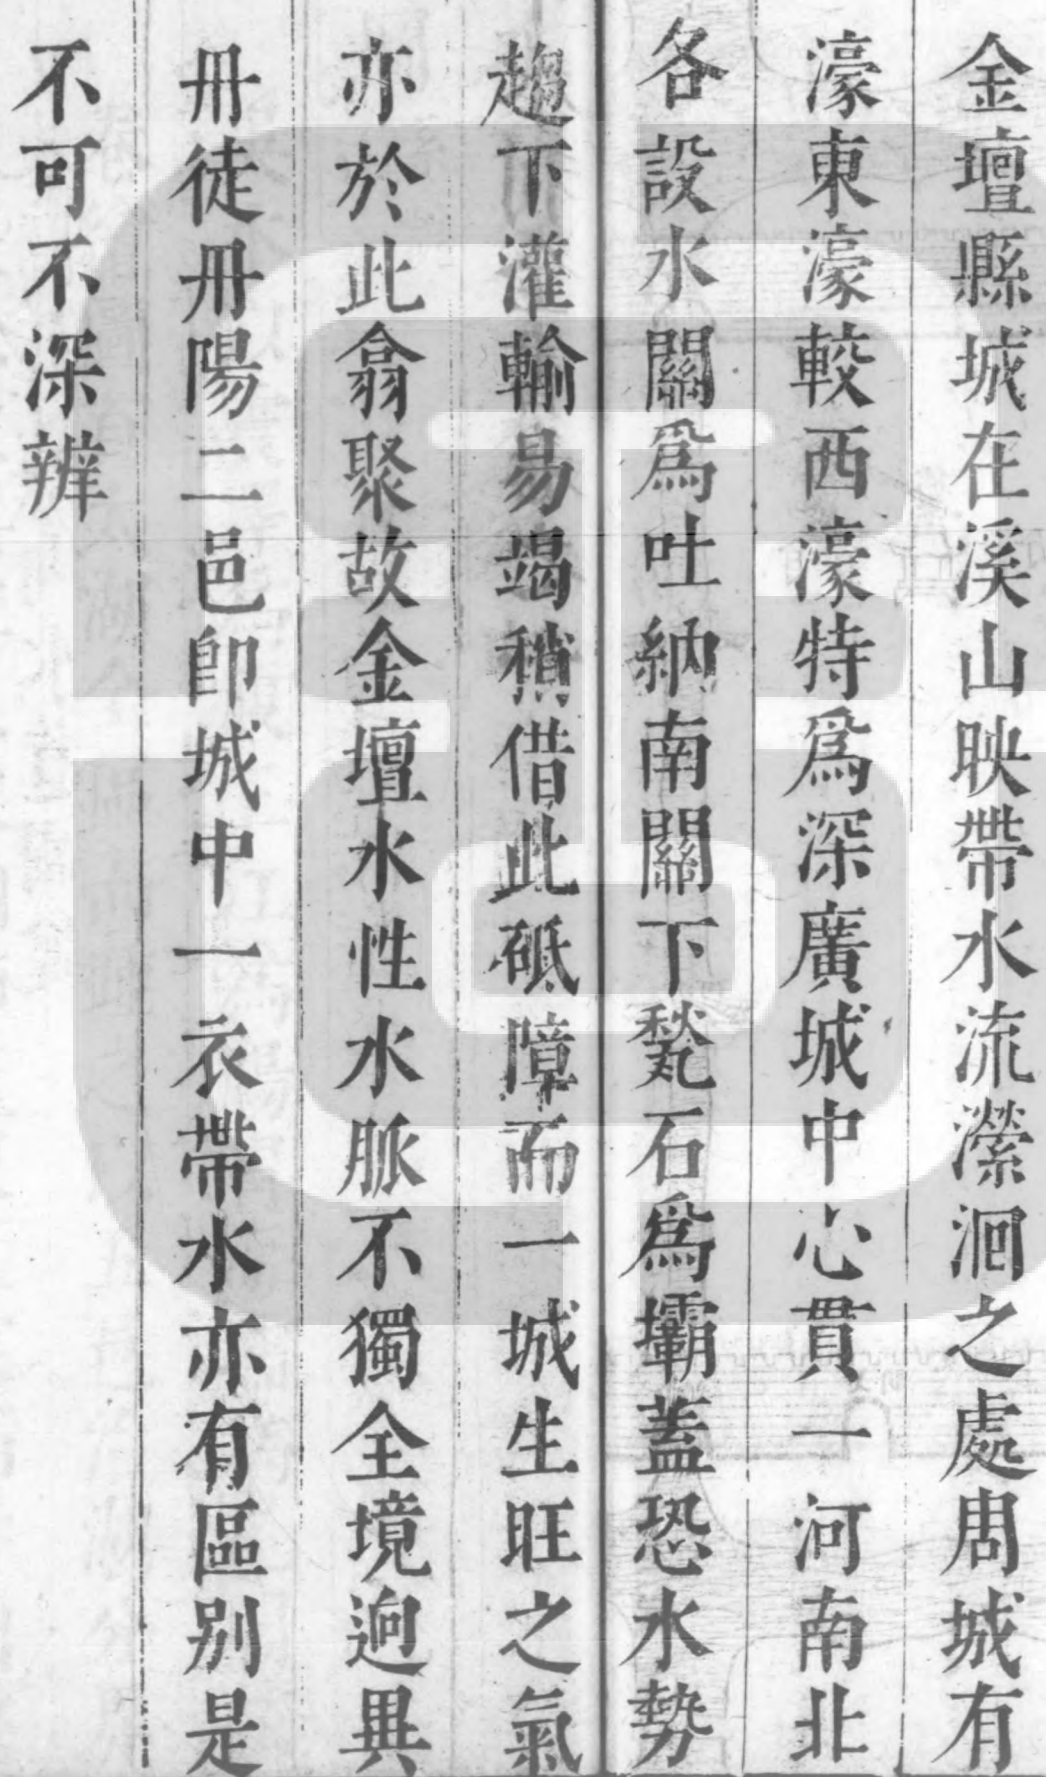 金壇縣城在溪山映帶水流瀠洄之處周城有
濠東濠較西濠特爲深廣城中心貫一河南北
各設水關爲吐納南關下甃石爲壩蓋恐水勢
趨下灌輸易竭稍借此砥障而一城生旺之氣
亦於此翕聚故金壇水性水脈不獨全境逈異
丹徒丹陽二邑卽城中一衣帶水亦有區別是
不可不深辨